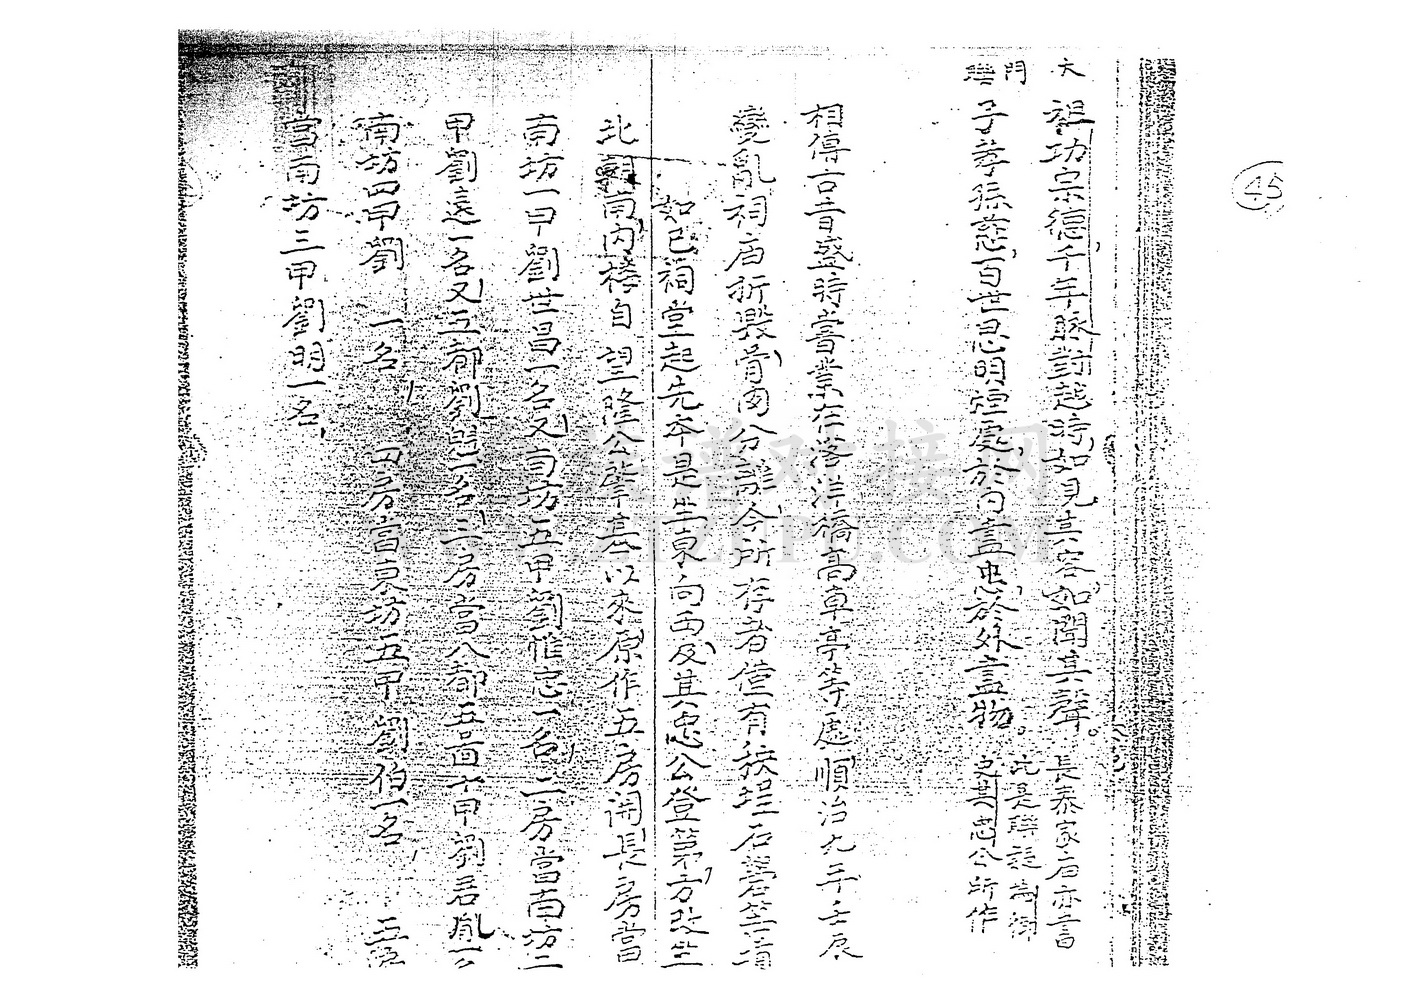 45
大門聯
祖功宗德千年脉對越時如見其容如聞其聲。長泰家庙亦書
子孝孫慈百世思明禋處於內盡忠於外盡物。此是聯疑為御史其忠公所作
相傳古音盛時嘗業在落洋橋高車亭等處順治九年壬辰
變亂祠庙折毀嘗田分議今所存者僅有秧埕石
如已祠堂起先本是坐東向西及其忠公登第方改坐
北朝南內樓自 望隆公肇基以來原作五房開長房當
南坊一甲劉世昌一名又南坊五甲劉惟忠一名二房當南坊二
甲劉遠一名又五都劉 一名三房當八都五啚十甲劉君鳳一名
南坊四甲劉 一名 四房當東坊五甲劉伯一名 五房
當南坊三甲劉明一名
族谱对接网
WWW.ZPD.COM